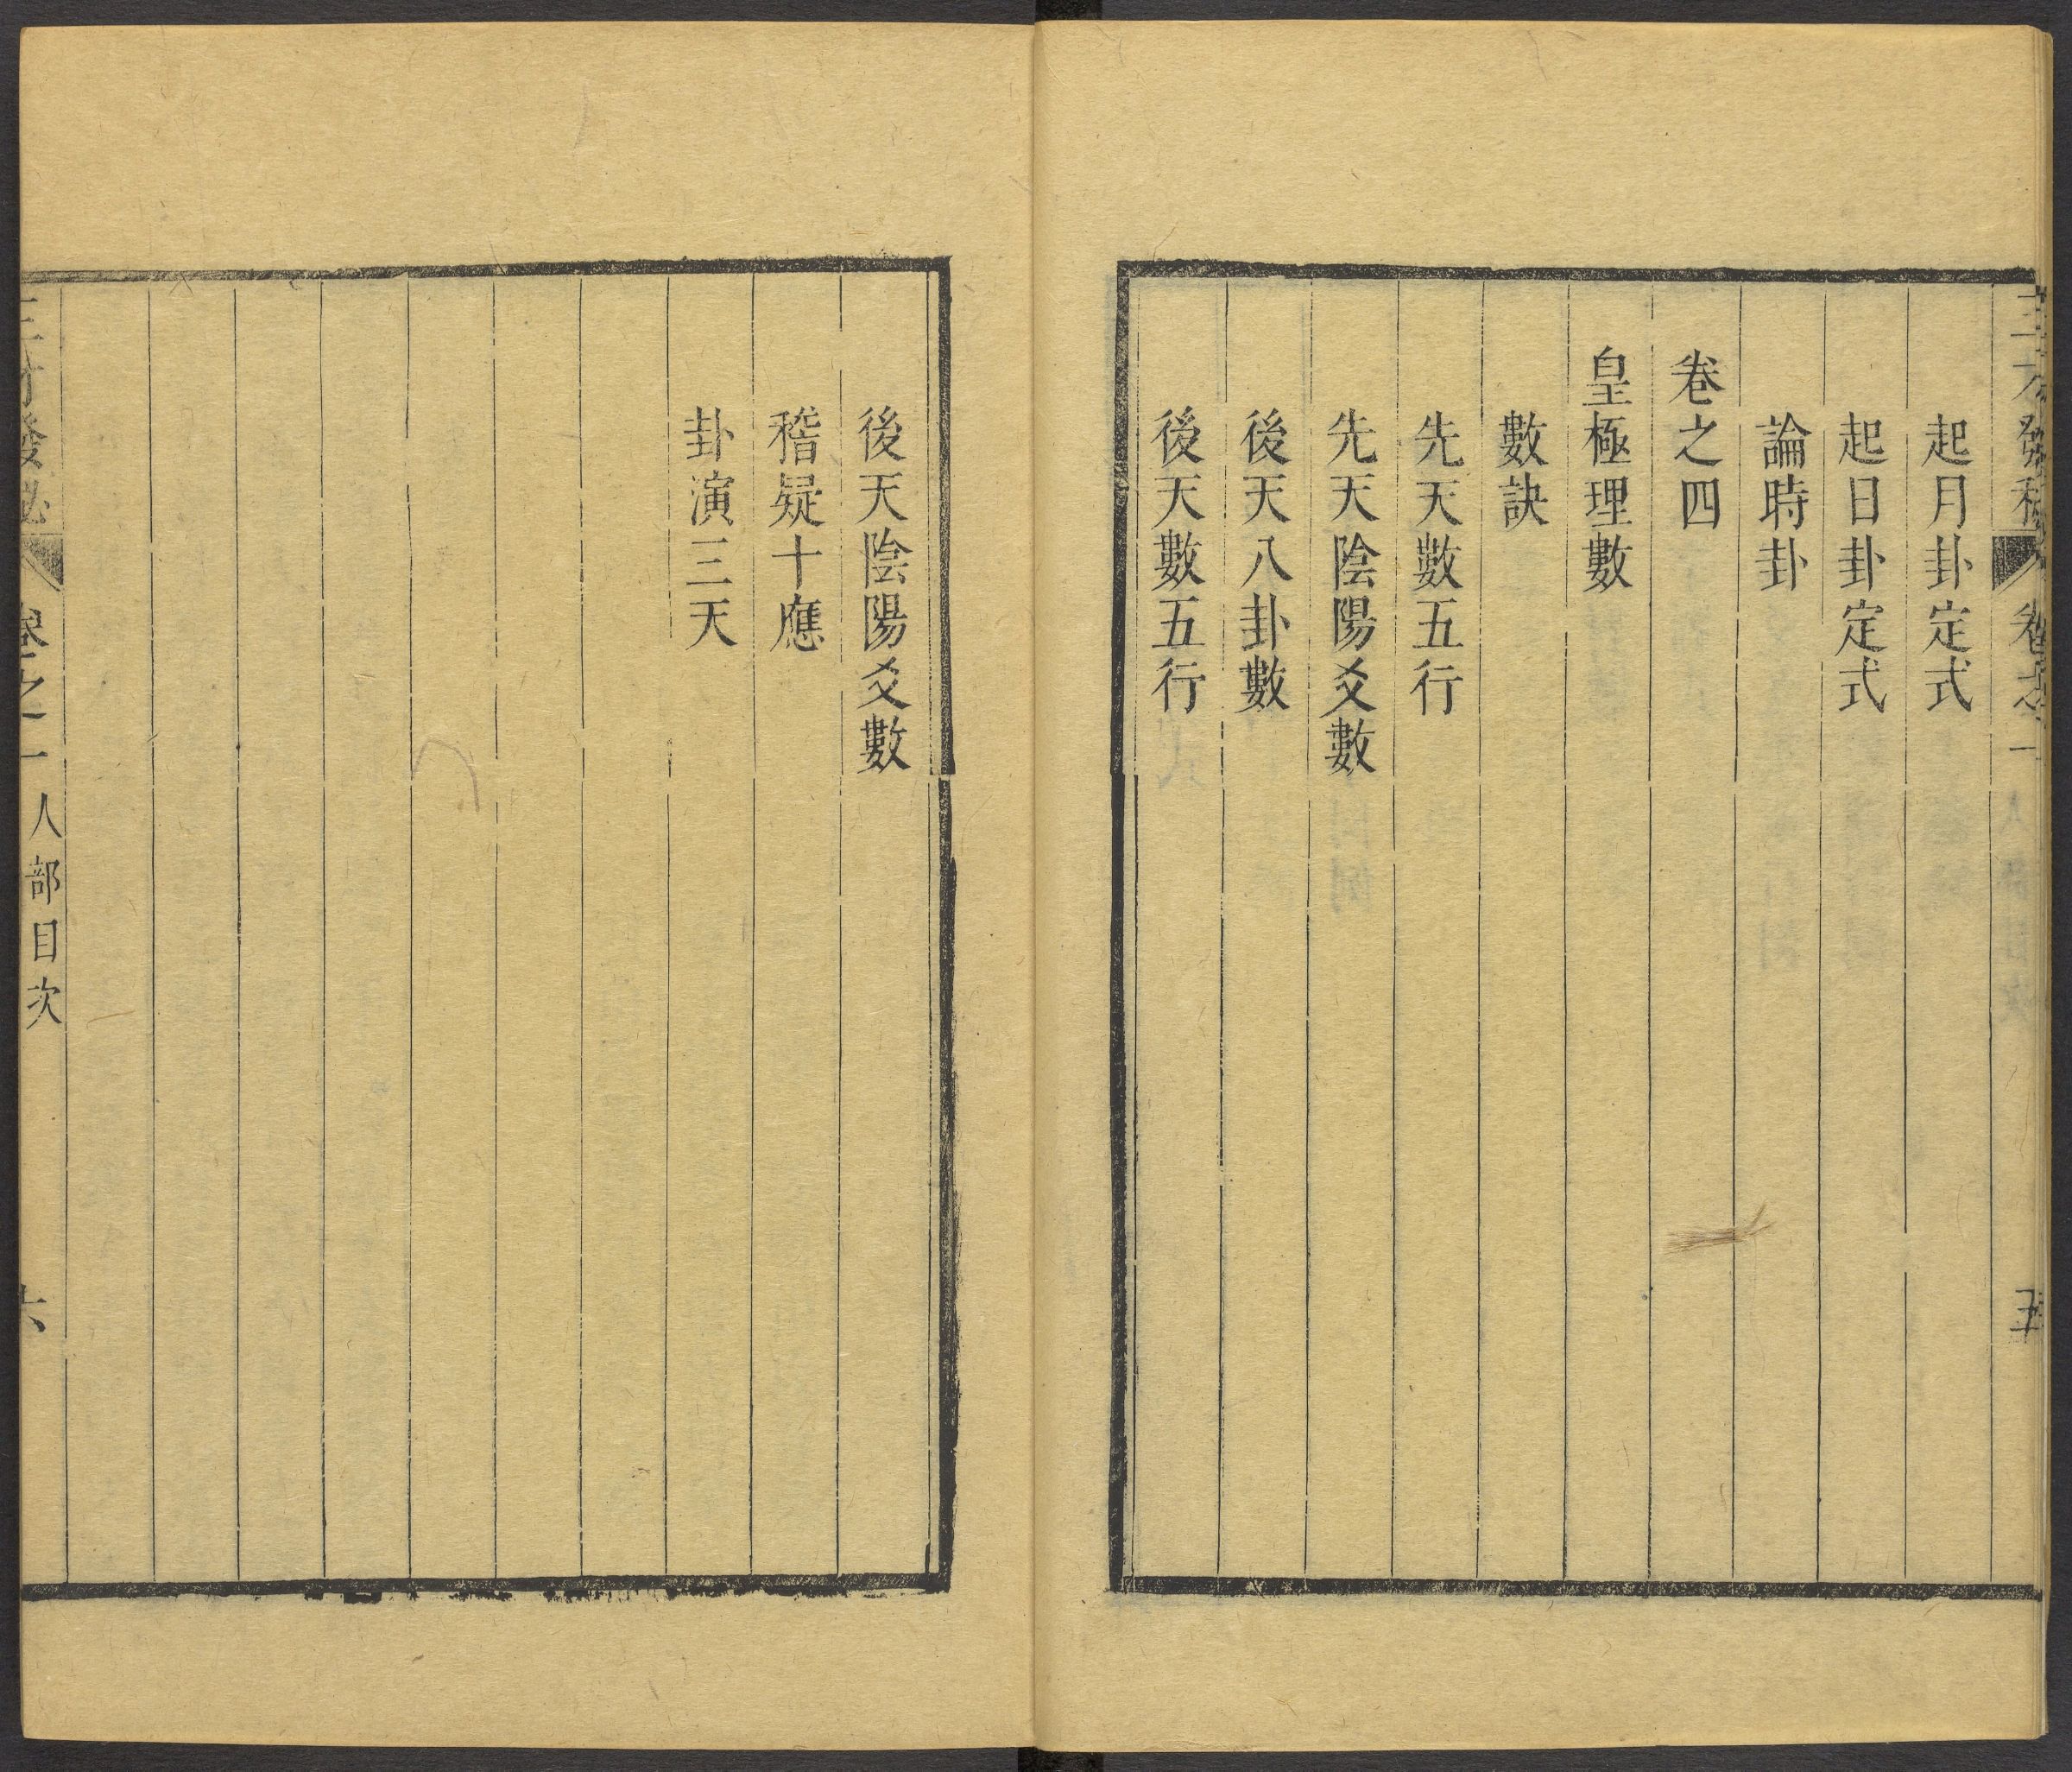 三才發秘 卷之一 五
起月卦定式
起日卦定式
論時卦
卷之四
皇極理數
數訣
先天數五行
先天陰陽爻數
後天八卦數
後天數五行
後天陰陽爻數
稽疑十應
卦演三天
三才發秘 卷之一 人部目次 六